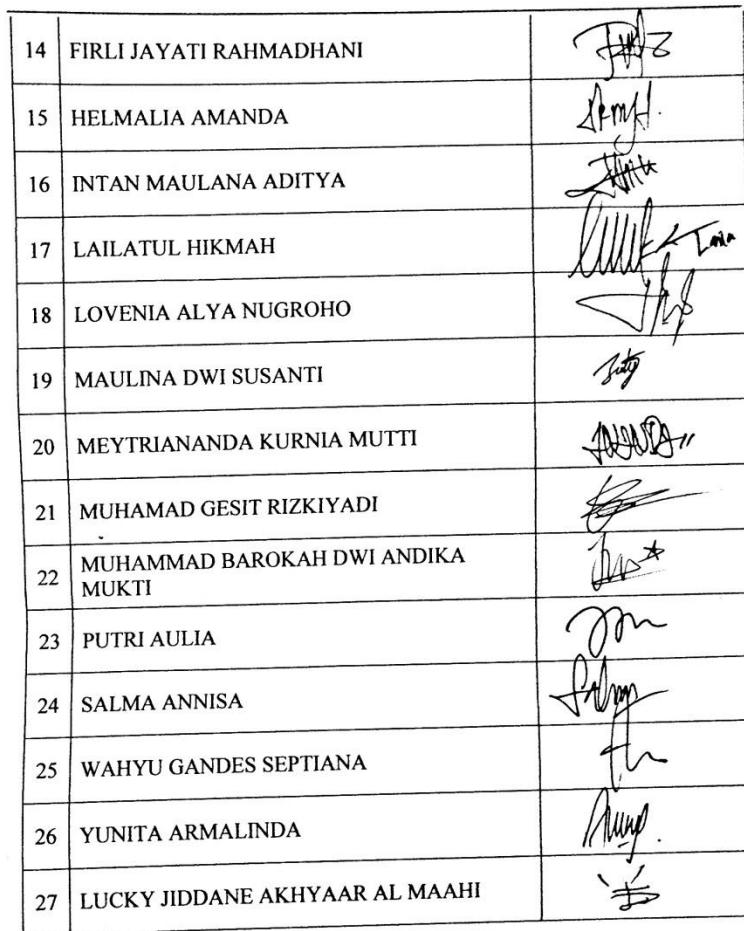 14 FIRLI JAYATI RAHMADHANI
15 HELMALIA AMANDA
16 INTAN MAULANA ADITYA
17 LAILATUL HIKMAH
18 LOVENIA ALYA NUGROHO
19 MAULINA DWI SUSANTI
20 MEYTRIANANDA KURNIA MUTTI
21 MUHAMAD GESIT RIZKIYADI
22 MUHAMMAD BAROKAH DWI ANDIKA
MUKTI
23 PUTRI AULIA
24 SALMA ANNISA
25 WAHYU GANDES SEPTIANA
26 YUNITA ARMALINDA
27 LUCKY JIDDANE AKHYAAR AL MAAHI